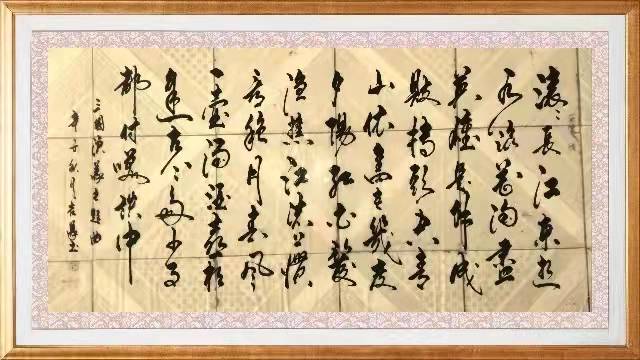 滚滚长江东逝
水浪花淘尽
英雄是非成
败转头空青
山依旧在几度
夕阳红白发
渔樵江渚上惯
看秋月春风
一壶浊酒喜相
逢古今多少事
都付笑谈中
三国演义主题曲
子秋月书